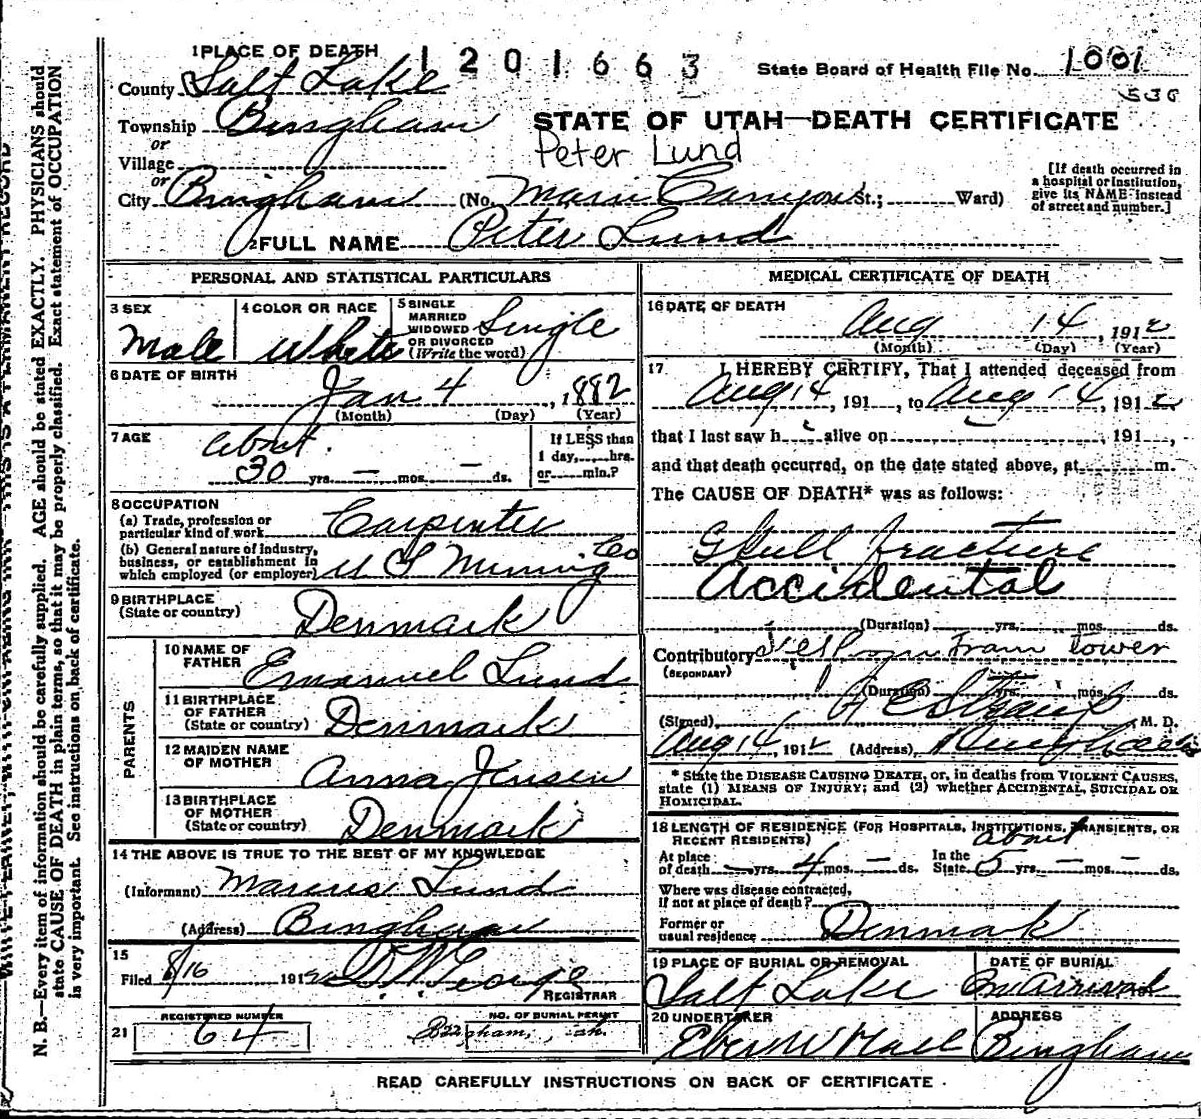 1 PLACE OF DEATH 1 2 0 1 6 6 3
State Board of Health File No. 1001
530
County Salt Lake
Township Bingham
or
Village
or
City Bingham (No. Main Canyon St.; Ward)
STATE OF UTAH—DEATH CERTIFICATE
Peter Lund
[If death occurred in a hospital or institution, give its NAME instead of street and number.]
2 FULL NAME Peter Lund
PERSONAL AND STATISTICAL PARTICULARS
3 SEX
Male
4 COLOR OR RACE
White
5 SINGLE MARRIED WIDOWED OR DIVORCED (Write the word) Single
6 DATE OF BIRTH
Jan 4, 1882
(Month) (Day) (Year)
7 AGE
about
30 yrs. — mos. — ds.
If LESS than 1 day, hrs. or min.?
8 OCCUPATION
(a) Trade, profession or particular kind of work Carpenter
(b) General nature of industry, business, or establishment in which employed (or employer) U S Mining Co
9 BIRTHPLACE
(State or country) Denmark
PARENTS
10 NAME OF FATHER Emanuel Lund
11 BIRTHPLACE OF FATHER (State or country) Denmark
12 MAIDEN NAME OF MOTHER Anna Jensen
13 BIRTHPLACE OF MOTHER (State or country) Denmark
14 THE ABOVE IS TRUE TO THE BEST OF MY KNOWLEDGE
(Informant) Marcus Lund
(Address) Bingham
15
Filed 8/16 1912 George
REGISTRAR
REGISTERED NUMBER
NO. OF BURIAL PERMIT
21 64 Bingham,
MEDICAL CERTIFICATE OF DEATH
16 DATE OF DEATH
Aug 14, 1912
(Month) (Day) (Year)
17 I HEREBY CERTIFY, That I attended deceased from
Aug 14, 191, to Aug 14, 1912
that I last saw h alive on 191,
and that death occurred, on the date stated above, at m.
The CAUSE OF DEATH* was as follows:
Skull fracture
Accidental
(Duration) yrs. mos. ds.
Contributory Fell from Tram tower
(SECONDARY)
(Duration) yrs. mos. ds.
(Signed) M. D.
Aug 14, 1912 (Address)
* State the DISEASE CAUSING DEATH, or, in deaths from VIOLENT CAUSES, state (1) MEANS OF INJURY; and (2) whether ACCIDENTAL, SUICIDAL OR HOMICIDAL.
18 LENGTH OF RESIDENCE (FOR HOSPITALS, INSTITUTIONS, TRANSIENTS, OR RECENT RESIDENTS) about
At place of death — yrs. 4 mos. — ds. In the State 5 yrs. — mos. — ds.
Where was disease contracted, if not at place of death?
Former or usual residence Denmark
19 PLACE OF BURIAL OR REMOVAL
Salt Lake
DATE OF BURIAL
On Arrival
20 UNDERTAKER
Eber W Hall
ADDRESS
Bingham
READ CAREFULLY INSTRUCTIONS ON BACK OF CERTIFICATE
N. B.—Every item of information should be carefully supplied. AGE should be stated EXACTLY. PHYSICIANS should
state CAUSE OF DEATH in plain terms, so that it may be properly classified. Exact statement of OCCUPATION
is very important. See instructions on back of certificate.